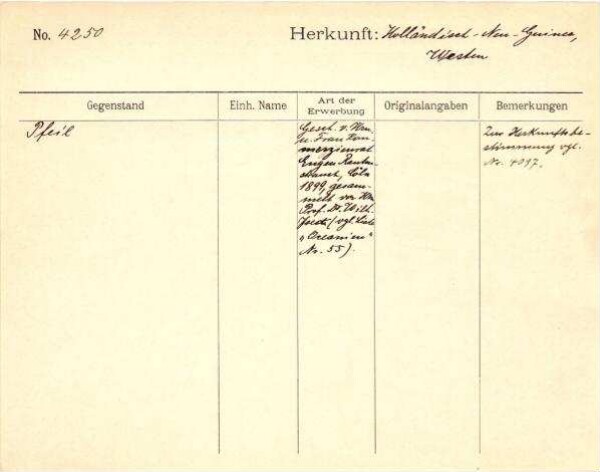 No. 4250
Herkunft: Holländisch-Neu-Guinea,
Westen
Gegenstand
Einh. Name
Art der
Erwerbung
Originalangaben
Bemerkungen
Pfeil
Gesch. v. Hrn.
u. Frau Kom-
merzienrat
Eugen Rauten-
strauch, Cöln
1899, gesam-
melt von Hrn.
Prof. Dr. Wilh.
Joest (vgl. Liste
"Oceanien"
Nr. 55).
Zur Herkunftsbe-
stimmung vgl.
Nr. 4097.